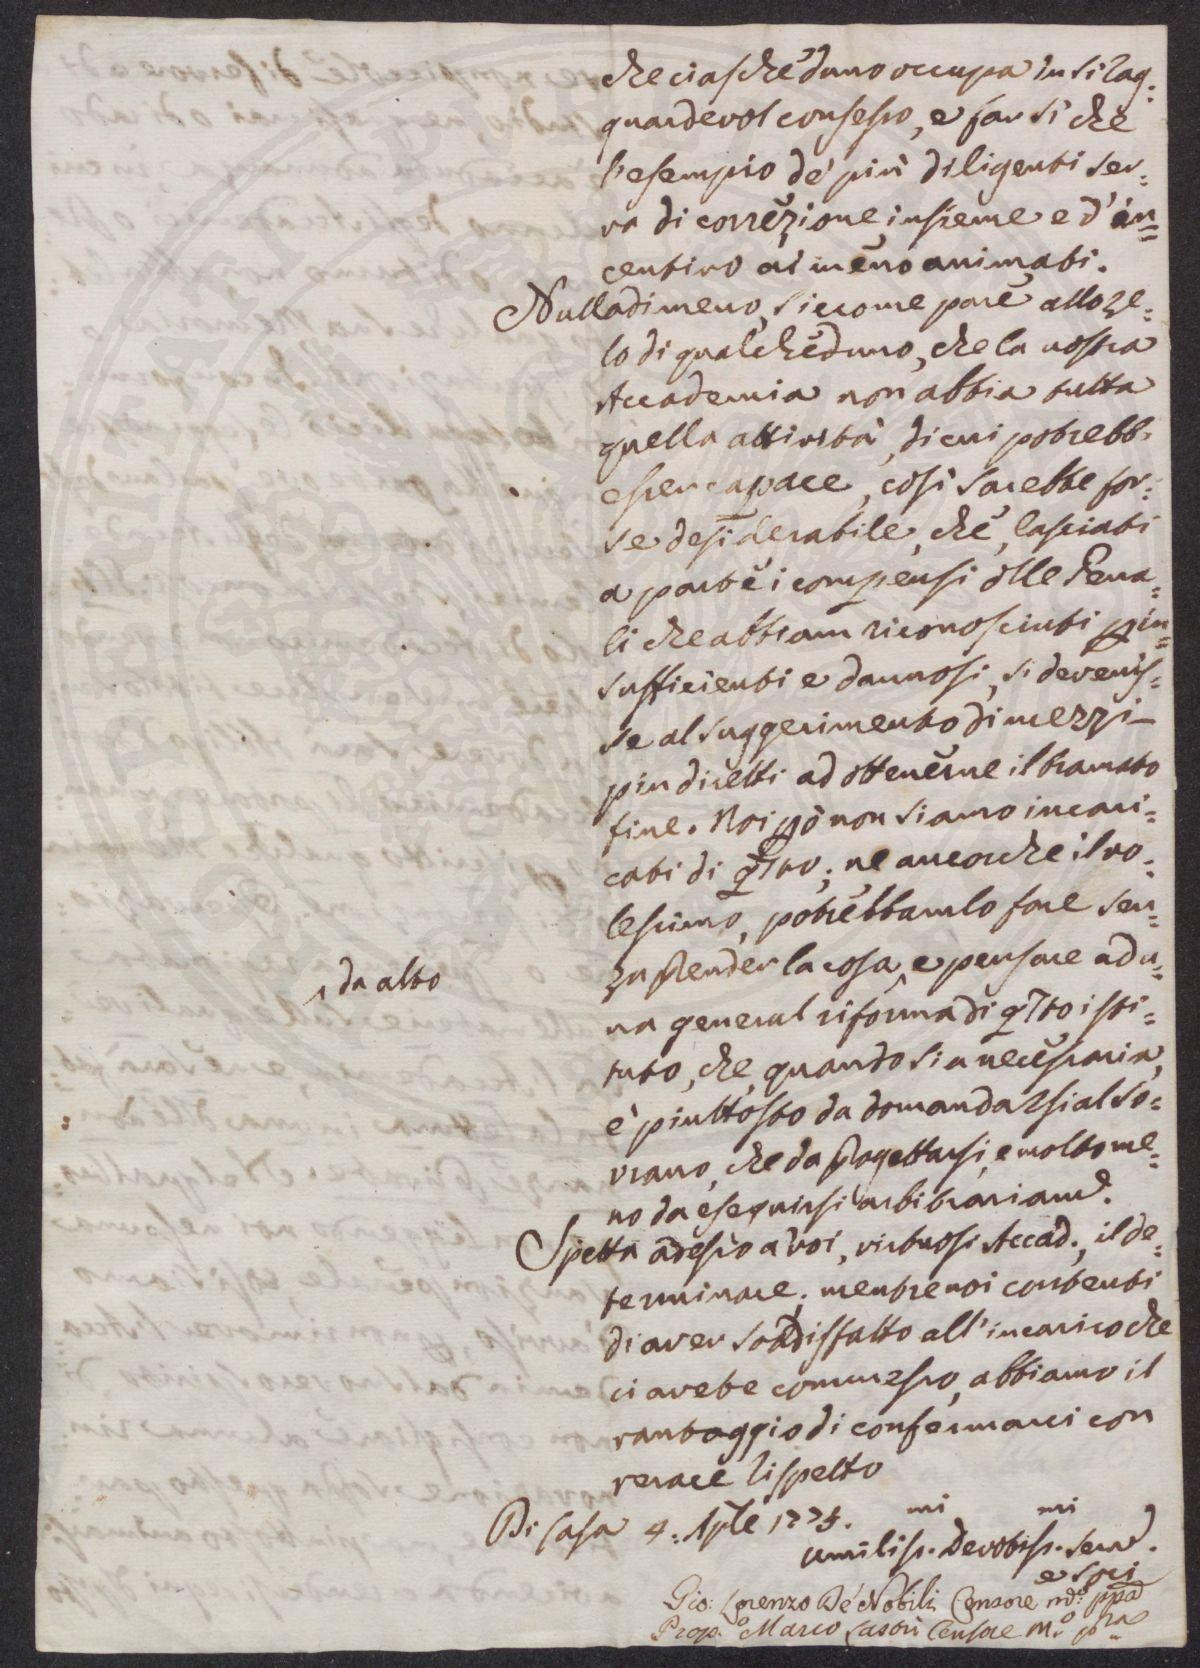 che ciascheduno occupa in sì rag:
guardevol consesso, e far sì che
l'esempio de' più diligenti ser:
va di correzione insieme e d'in=
centivo ai meno animati.
Nulladimeno, siccome pare allo ze:
lo di qualcheduno, che la nostra
Accademia non abbia tutta
quella attività, di cui potrebb.
esser capace, così sarebbe for:
se desiderabile, che, lasciati
a parte i compensi dlle Pena=
li che abbiam riconosciuti p in=
sufficienti e dannosi, si devenis=
se al suggerimento di mezzi
piu diretti ad ottenerne il bramato
fine. Noi pò non siamo incari=
cati di qsto; ne ancorche il vo:
lessimo, potrebbamlo fare sen=
za prender la cosa, e pensare ad u=
da alto
na general riforma di qsto isti=
tuto, che, quando sia necessaria,
è piuttosto da domandarsi al So:
vrano, che da progettarsi, e molto me=
no da eseguirsi arbitrariamte.
Spetta adesso a voi, virtuosi Accad., il de:
terminare; mentre noi contenti
di aver soddisfatto all'incarico che
ci avete commesso, abbiamo il
vantaggio di confermarci con
verace rispetto
Di Casa 4: Aple 1775.
umilis. Devotis. serv.
mi mi
e soci
Gio: Lorenzo De' Nobili Censore
Prop.o Marco Lastri Censore